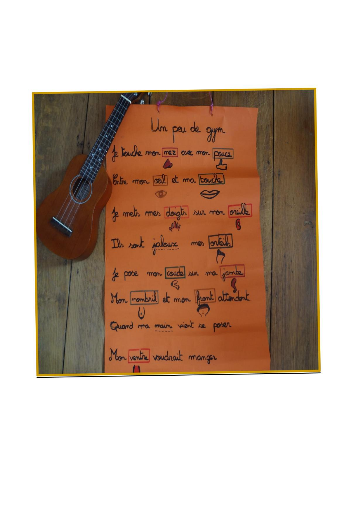 Un peu de gym
Je touche mon nez avec mon pouce
Entre mon œil et ma bouche
Je mets mes doigts sur mon oreille
Ils sont jaloux mes orteils
Je pose mon coude sur ma jambe
Mon nombril et mon front attendent
Quand ma main vient se poser
Mon ventre voudrait manger